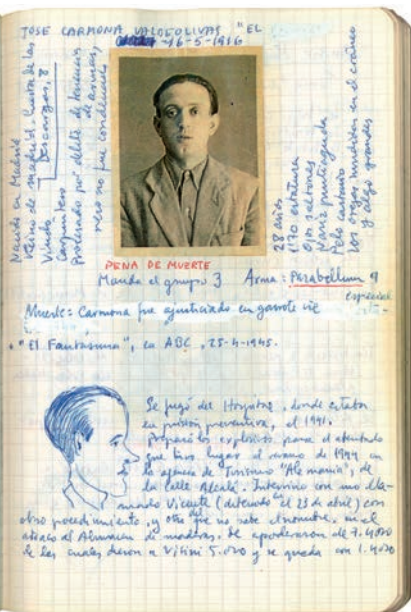 JOSE CARMONA VALDEOLIVAS "EL
16-5-1916
Nacido en Madrid
Vecino de Madrid. Cuesta de las
Descargas, 8
Viudo
Carpintero
Procesado por delito de tenencia
de armas,
pero no fue condenado
28 años
1,70 estatura
Ojos saltones
Nariz puntiaguda
Pelo castaño
Las orejas hundidas en el cráneo
y algo grandes
PENA DE MUERTE
Manda el grupo 3 Arma: Parabellum 9
especial
Muerte: Carmona fue ajusticiado en garrote vil
"El Fantasma", en ABC, 25-4-1945.
Se fugó del Hospital, donde estaba
en prisión preventiva, el 1941.
Preparó los explosivos para el atentado
que tuvo lugar el verano de 1944 en
la agencia de Turismo "Alemania", de
la calle Alcalá. Intervino con uno lla-
mado Vicente (detenido el 23 de abril) con
otro procedimiento, y otro del que no sabe el nombre, en el
atraco al Almacén de maderas. Se apoderaron de 7.400
de las cuales dieron a Vitini 5.000 y se queda con 1.400